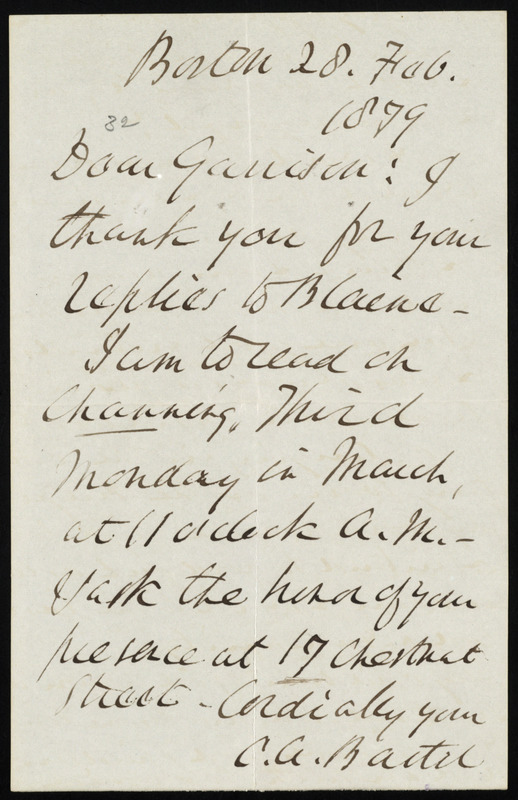 Boston 28. Feb.
1879
32
Dear Garrison: I
thank you for your
replies to Blaine -
I am to read on
Channing, Third
Monday in March,
at 11 o'clock A.M. -
& ask the honor of your
presence at 17 Chestnut
Street - Cordially your
C. A. Bartol